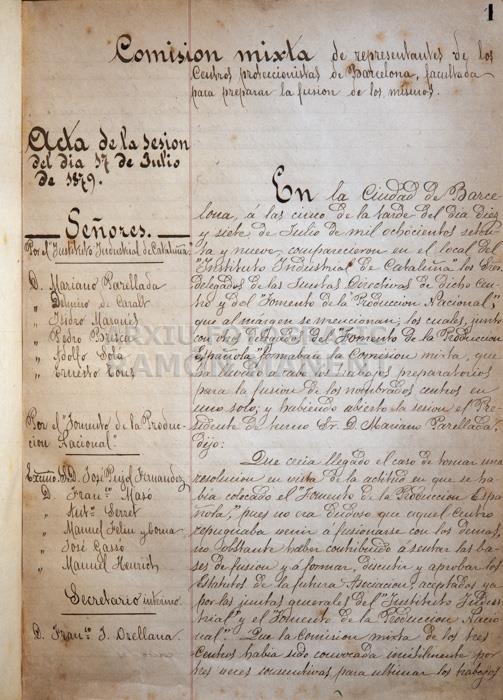 1
Comision mixta de representantes de los
Centros proteccionistas de Barcelona, facultada
para preparar la fusion de los mismos.
Acta de la sesion
del dia 17 de Julio
de 1879.
Señores.
Por el "Instituto Industrial de Cataluña"
D. Mariano Parellada
" Delmiro de Caralt
" Isidro Marqués
" Pedro
" Adolfo Solá
" Ernesto
Por el "Fomento de la Produc-
cion Nacional."
Excmo. S. D. José Pujol Fernandez
D. Franco. Masó
" Anto. Serret
" Manuel Feliu y Coma
" José Gassó
" Manuel Henrich
Secretario interino.
D. Franco. J. Orellana.
En la Ciudad de Barce-
lona, á las cinco de la tarde del dia diez
y siete de Julio de mil ochocientos seten-
ta y nueve, comparecieron en el local del
"Instituto Industrial de Cataluña" los
Delegados de las Juntas Directivas de dicho Cen-
tro y del Fomento de la Produccion Nacional,
que al márgen se mencionan; los cuales, junto
con otros delegados del "Fomento de la Produccion
Española" formaban la Comision mixta, que
llevado á cabo los trabajos preparatorios
para la fusion de los nombrados centros en
uno solo; y habiendo abierto la sesion el Pre-
sidente de turno Sr. D. Mariano Parellada,
dijo:
Que creia llegado el caso de tomar una
resolucion en vista de la actitud en que se ha-
bia colocado el "Fomento de la Produccion Espa-
ñola," pues no era dudoso que aquel Centro
repugnaba venir á fusionarse con los demas,
no obstante haber contribuido á sentar las ba-
ses de fusion y á formar, discutir y aprobar los
Estatutos de la futura Asociacion, aceptados ya
por las juntas generales del "Instituto Indus-
trial" y el "Fomento de la Produccion Nacio-
nal." Que la Comision mixta de los tres
Centros habia sido convocada inútilmente por
tres veces consecutivas para ultimar los trabajos
ARXIU FOTOGRÀFIC
RAMON MANENT